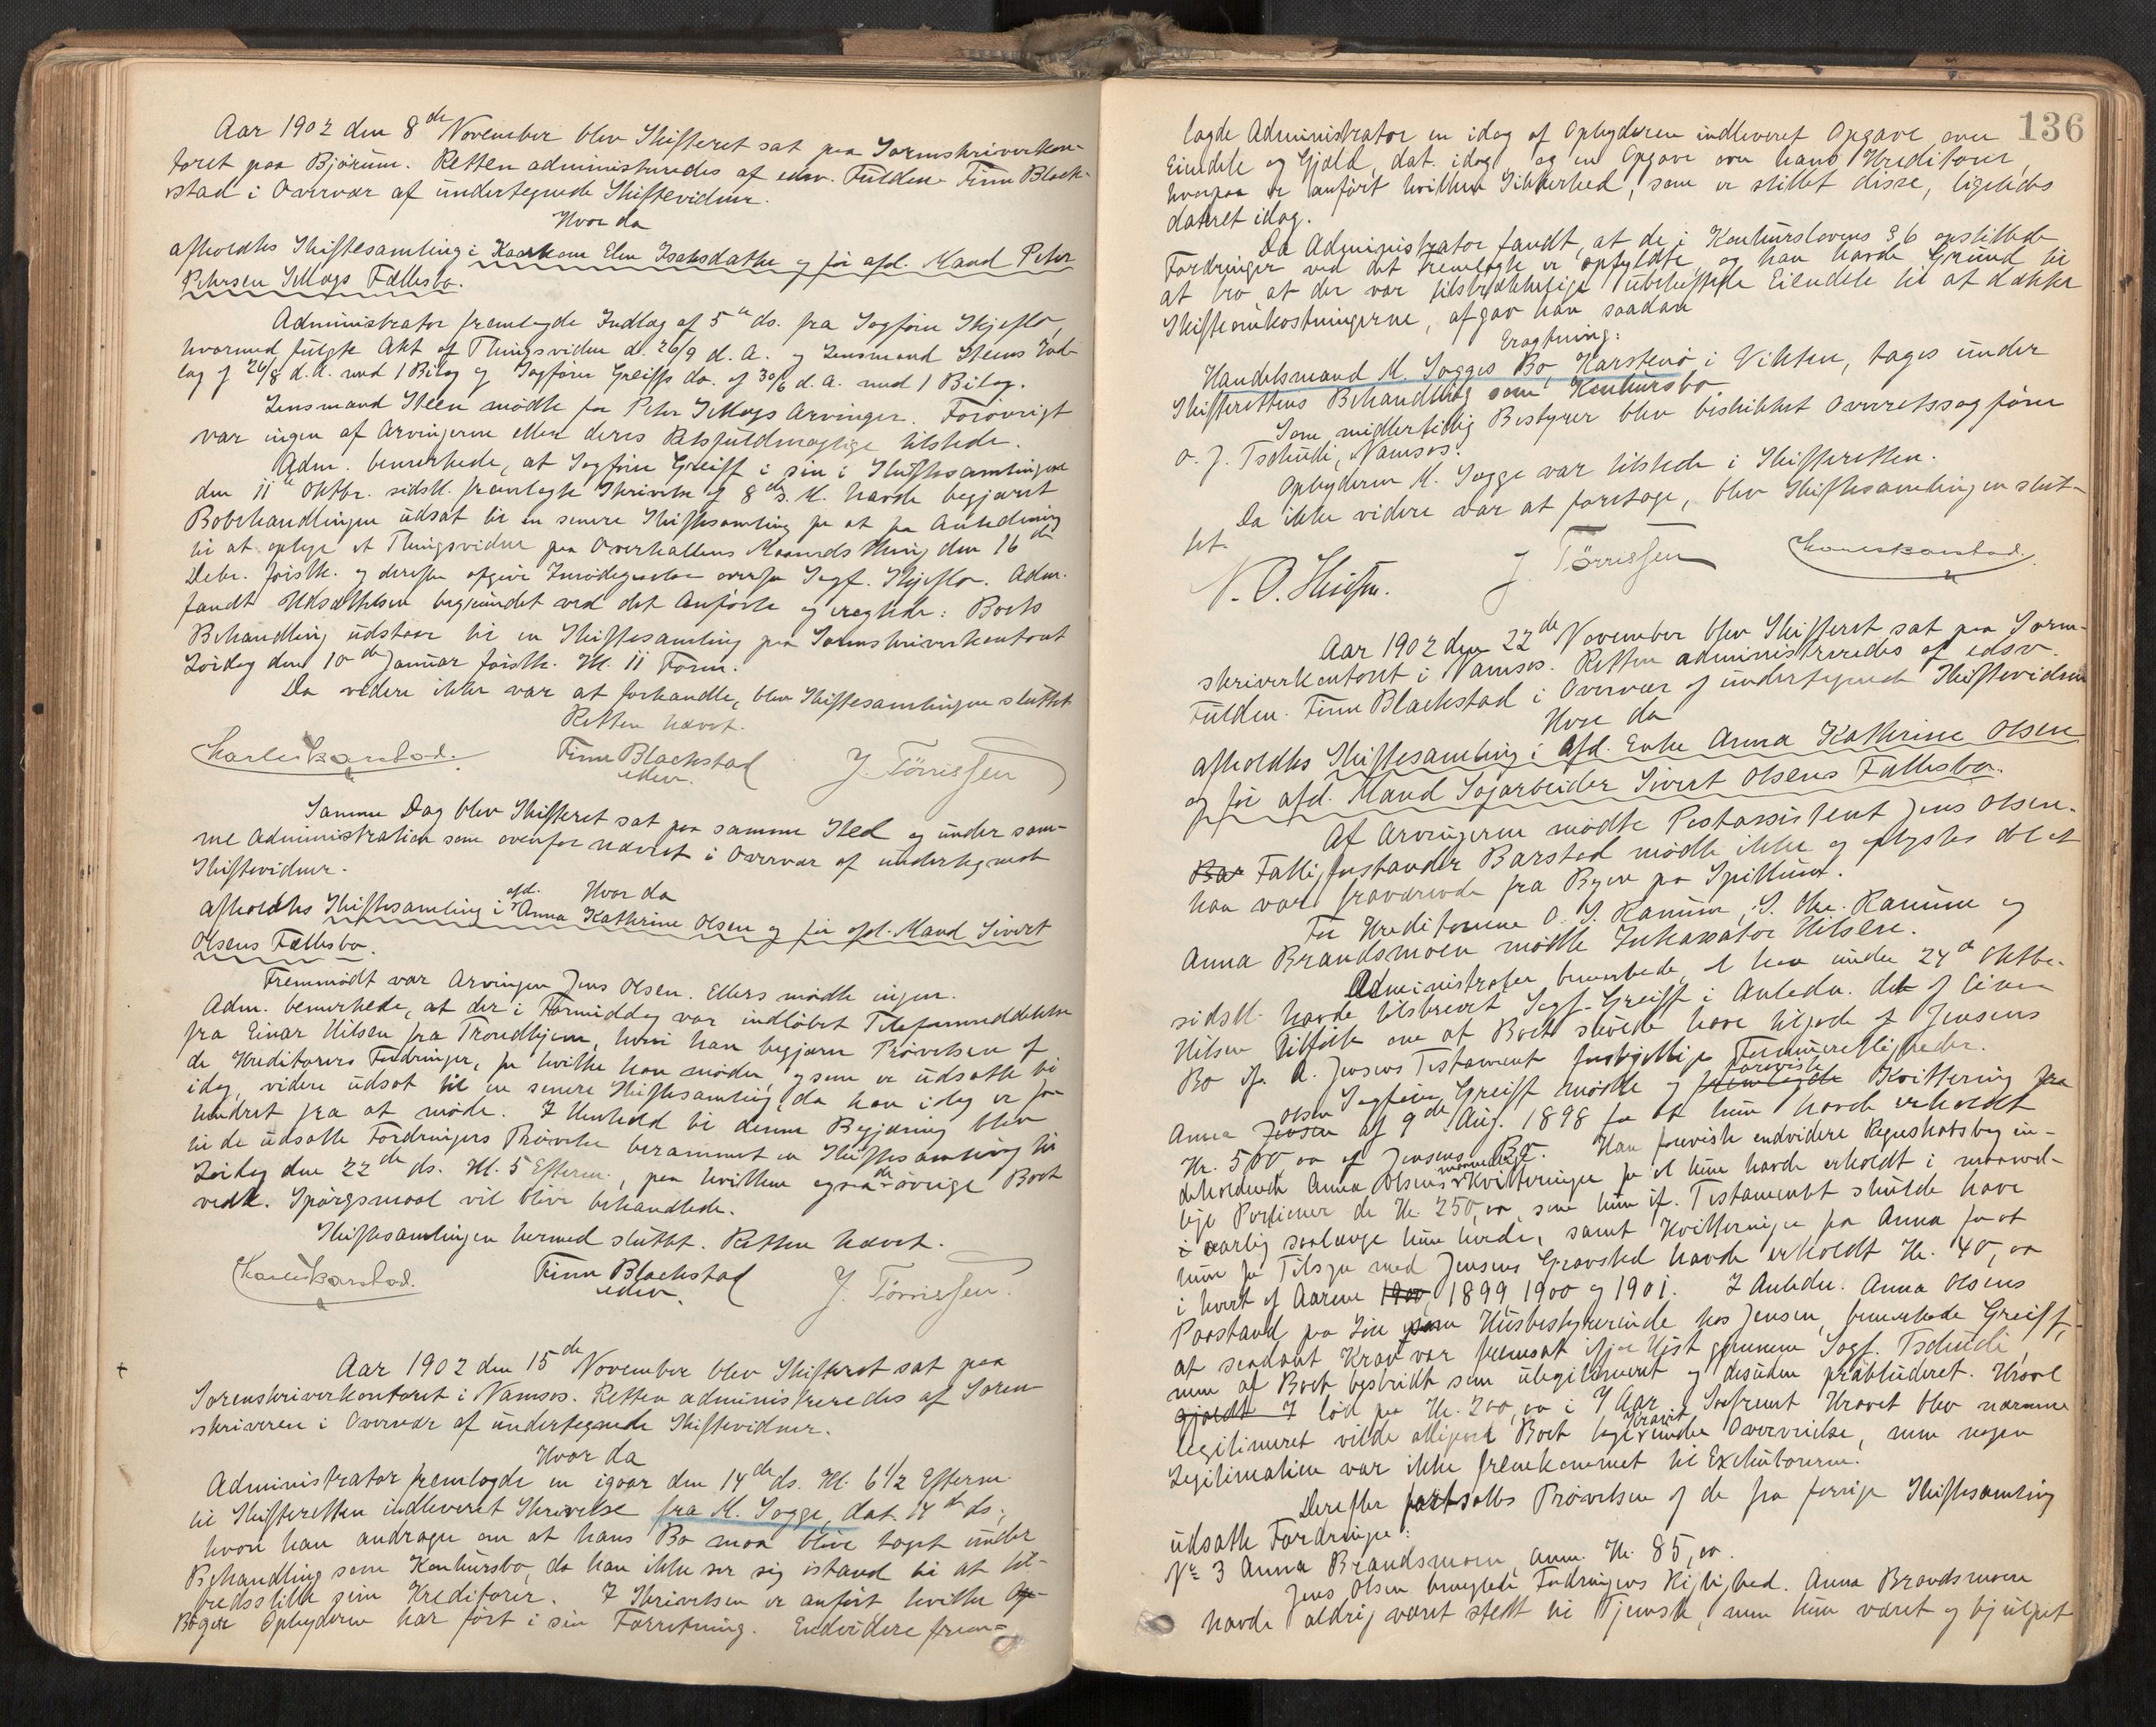 Aar 1902 den 8de November blev Skifteret sat paa Sorenskriverkon-
toret paa Bjørum. Retten administreredes af edsv. Fuldm. Finn Black-
stad i Overvær af undertegnede Skiftevidner.
Hvor da
afholdtes Skiftesamling i Kaarkone Elen Isaksdatter og før afd. Mand Peter
Petersen Fællesbo.
Administrator fremlagde Indlæg af 5te ds. fra Sagfører Skjeflo,
hvormed fulgte Akt af Thingsvidne d. 26/9 d. A. og Lensmand Steens Ind-
læg af 26/8 d. A. med 1 Bilag og Sagfører Greiffs do. af 30/6 d. A. med 1 Bilag.
Lensmand Steen mødte for Peter Arvinger. Forøvrigt
var ingen af Arvingerne eller deres Retsfuldmægtige tilstede.
Adm. bemærkede, at Sagfører Greiff i sin i Skiftesamlingen
den 11te Oktbr. sidstl. fremlagte Skrivelse af 8de s. M. havde begjæret
Bobehandlingen udsat til en senere Skiftesamling for at faa Anledning
til at optage et Thingsvidne paa Overhallens Maanedsthing den 16de
Debr. førstk. og derefter afgive Imødegaaelse overfor Sagf. Skjeflo. Adm.
fandt Udsættelsen begrundet ved det Anførte og eragtede: Boets
Behandling udstaar til en Skiftesamling paa Sorenskriverkontoret
Lørdag den 10de Januar førstk. Kl. 11 Form.
Da videre ikke var at forhandle, blev Skiftesamlingen sluttet
Retten hævet.
Finn Blackstad J. Tørrissen
edsv.
Samme Dag blev Skifteret sat paa samme Sted og under sam-
me Administration som ovenfor nævnt i Overvær af undertegnede
Skiftevidner.
Hvor da
afholdtes Skiftesamling i afd. Anna Kathrine Olsen og før afd. Mand Sivert
Olsens Fællesbo.
Fremmødt var Arvingen Jens Olsen. Ellers mødte ingen.
Adm. bemærkede, at der i Formiddag var indløbet Telefonmeddelelse
fra Einar Nilsen fra Trondhjem, hvori han begjærer Prøvelsen af
de Kreditorers Fordringer, for hvilke han møder, og som er udsatte til
idag, videre udsat til en senere Skiftesamling, da han idag er for-
hindret fra at møde. I Henhold til denne Begjæring blev
til de udsatte Fordringers Prøvelse berammet en Skiftesamling til
Lørdag den 22de ds. Kl. 5 Efterm., paa hvilken ogsaa de øvrige Boet
vedk. Spørgsmaal vil blive behandlede.
Skiftesamlingen hermed sluttet. Retten hævet.
Finn Blackstad J. Tørrissen.
edsv.
+ Aar 1902 den 15de November blev Skifteret sat paa
Sorenskriverkontoret i Namsos. Retten administreredes af Soren-
skriveren i Overvær af undertegnede Skiftevidner.
Hvor da
Administrator fremlagde en igaar den 14de ds. Kl. 6 1/2 Efterm.
til Skifteretten indleveret Skrivelse fra M. Sogge, dat. 14de ds.,
hvori han andrager om at hans Bo maa blive taget under
Behandling som Konkursbo, da han ikke ser sig istand til at til-
fredsstille sine Kreditorer. I Skrivelsen er anført hvilke Op-
Bøger Opbyderen har ført i sin Forretning. Endvidere frem=
136
lagde Administrator en idag af Opbyderen indleveret Opgave over
Eiendele og Gjæld, dat. idag, og en Opgave over hans Kreditorer,
hvorpaa er anført hvilken Sikkerhed, som er stillet disse, ligeledes
dateret idag.
Da Administrator fandt, at de i Konkurslovens § 6 opstillede
Fordringer ved det fremlagte er opfyldte, og han havde Grund til
at tro, at der var tilstrækkelige ubeheftede Eiendele til at dække
Skifteomkostningerne, afgav han saadan
Eragtning:
Handelsmand M. Sogges Bo, Karstenø i Vikten, tages under
Skifterettens Behandling som Konkursbo.
Som midlertidig Bestyrer blev beskikket Overretssagfører
O. J. Tschudi, Namsos.
Opbyderen M. Sogge var tilstede i Skifteretten.
Da ikke videre var at foretage, blev Skiftesamlingen slut-
tet.
J Tørrissen
Aar 1902 den 22de November blev Skifteret sat paa Soren-
skriverkontoret i Namsos. Retten administreredes af edsv.
Fuldm. Finn Blackstad i Overvær af undertegnede Skiftevidner
Hvor da
afholdtes Skiftesamling i afd. Enke Anna Kathrine Olsen
og før afd. Mand Sagarbeider Sivert Olsens Fællesbo.
Af Arvingerne mødte Postassistent Jens Olsen.
Bar Fattigforstander Barstad mødte ikke og oplystes det at
han var fraværende fra Byen paa Spillum.
For Kreditorerne O. S. Ranum, S. Chr. Ranum og
Anna Brandsmoen mødte Inkassator Nilsen.
Administrator bemærkede, at han under 24de Oktbr.
sidstl. havde tilskrevet Sagf. Greiff i Anledn. det af Einar
Nilsen om at Boet skulde have tilgode af Jensens
Bo if. A. Jensens Testament forskjellige Formuerettigheder.
Sagfører Greiff mødte og fremlagde foreviste Kvittering fra
Anna Jensen Olsen af 9de Aug. 1898 for at hun havde erholdt
Kr. 500,00 af Jensens Bo. Han foreviste endvidere Regnskabsbog in-
deholdende Anna Olsens maanedlige Kvitteringer for at hun havde erholdt i maaned-
lige Portioner de Kr. 250,00, som hun if. Testamentet skulde have
i aarlig saalænge hun levede, samt Kvitteringer fra Anna for at
hun for Tilsyn med Jensens Gravsted havde erholdt Kr. 40,00
i hvert af Aarene 1900, 1899, 1900 og 1901. I Anledn. Anna Olsens
Paastand paa Løn som Husbestyrerinde hos Jensen, bemærkede Greiff,
at saadant Krav var fremsat ifjor Høst gjennem Sagf. Tschudi,
men af Boet bestridt som ulegitimeret og desuden prækluderet. Kravet
gjaldt 7 lød paa Kr. 200,00 i 7 Aar. Saafremt Kravet blev nærmere
legitimeret vilde alligevel Boet tage Kravet under Overveielse, men nogen
Legitimation var ikke fremkommet til Exekutorerne.
Derefter fortsattes Prøvelsen af de fra forrige Skiftesamling
udsatte Fordringer:
No 3 Anna Brandsmoen, anm. Kr. 85,00.
Jens Olsen benegtede Fordringens Rigtighed. Anna Brandsmoen
havde aldrig været stedt til Tjeneste, men hun været og hjulpet